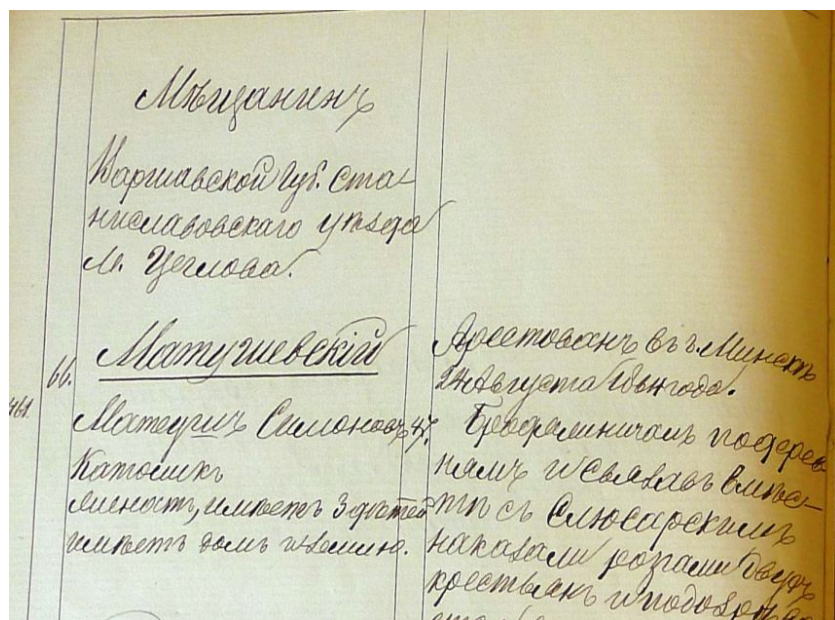 Мѣщанинъ
Варшавской Губ. Ста-
ниславовскаго уѣзда
м. Цеглова.
66. Матушевскій
461
Матеушъ Симоновъ 47.
Католикъ
женатъ, имѣетъ 3 дѣтей
имѣетъ домъ и землю.
Арестованъ въ г. Минскѣ
24 Августа 1864 года.
по дерев-
нямъ и связавъ вмѣс-
тѣ съ Слюсарскимъ
наказали розгами двухъ
крестьянъ и